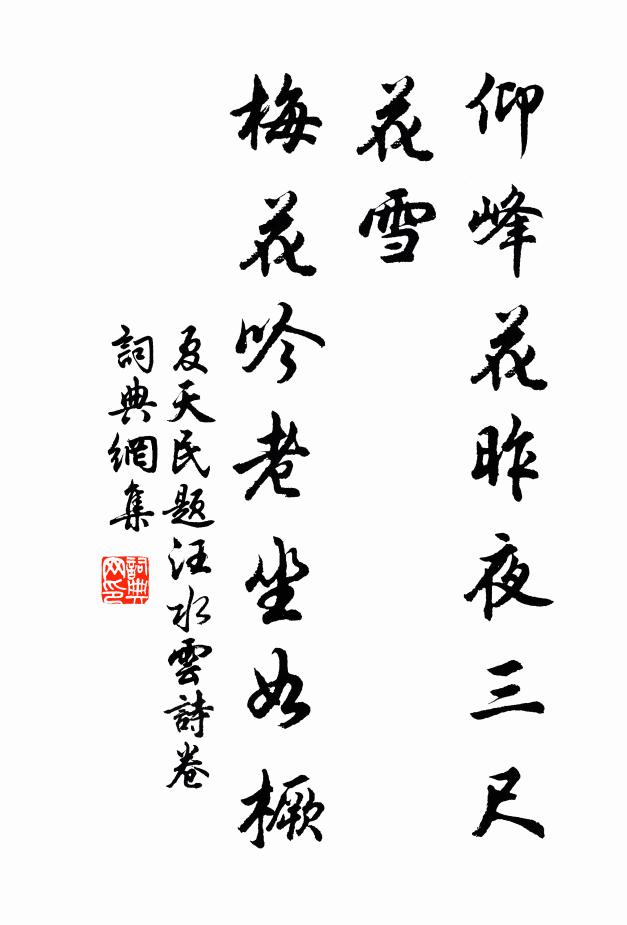 仰峰花昨夜三尺
花雪
梅花吟老坐如橛
夏天民題汪水雲詩卷
詞典網集
詞典
网印